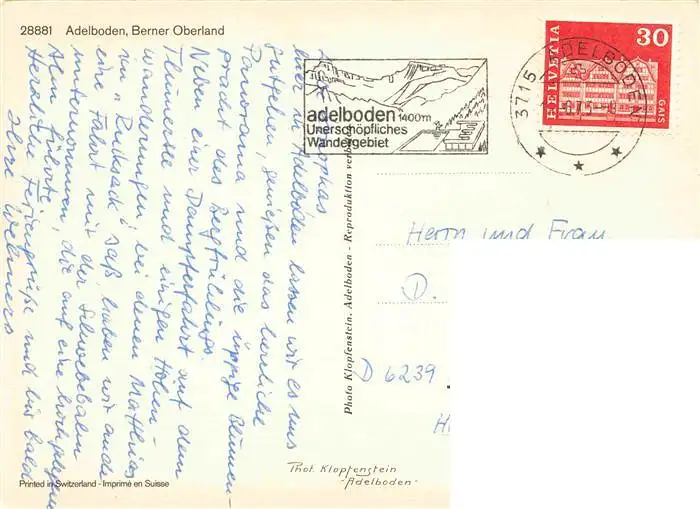 28881 Adelboden, Berner Oberland
adelboden 1400m
Unerschöpfliches
Wandergebiet
3715 ADELBODEN
HELVETIA
30
GAIS
Hier in Adelboden lassen wir es uns
gutgehen, genießen das herrliche
Panorama und die üppige Blumen-
pracht des Bergfrühlings.
Neben einer Dampferfahrt auf dem
Thuner See und einigen Höhen-
wanderungen bei denen Matthias
im Rucksack saß, haben wir auch
eine Fahrt mit der Schwebebahn
unternommen, die auf eine hochgelegene
Alm führte.
Herzliche Feriengrüße und bis bald
Ihre
Photo Klopfenstein, Adelboden - Reproduktion verboten
Herrn und Frau
D.
D 6239
H
Phot. Klopfenstein
-Adelboden-
Printed in Switzerland - Imprimé en Suisse